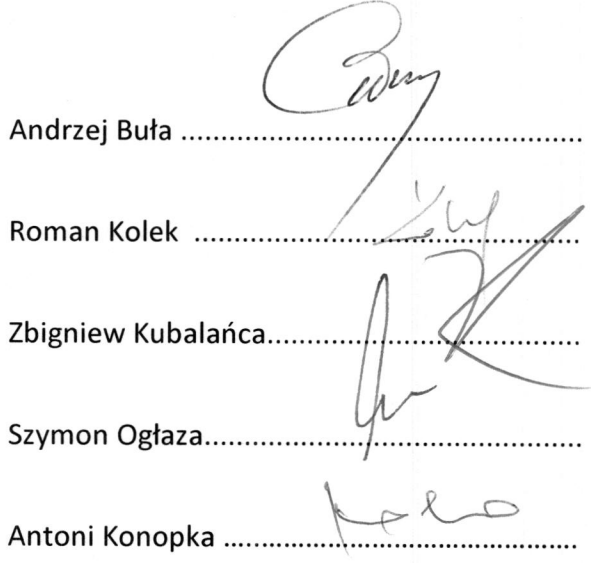 Andrzej Buła ....................................................
Roman Kolek ..................................................
Zbigniew Kubalańca........................................
Szymon Ogłaza.................................................
Antoni Konopka ..............................................